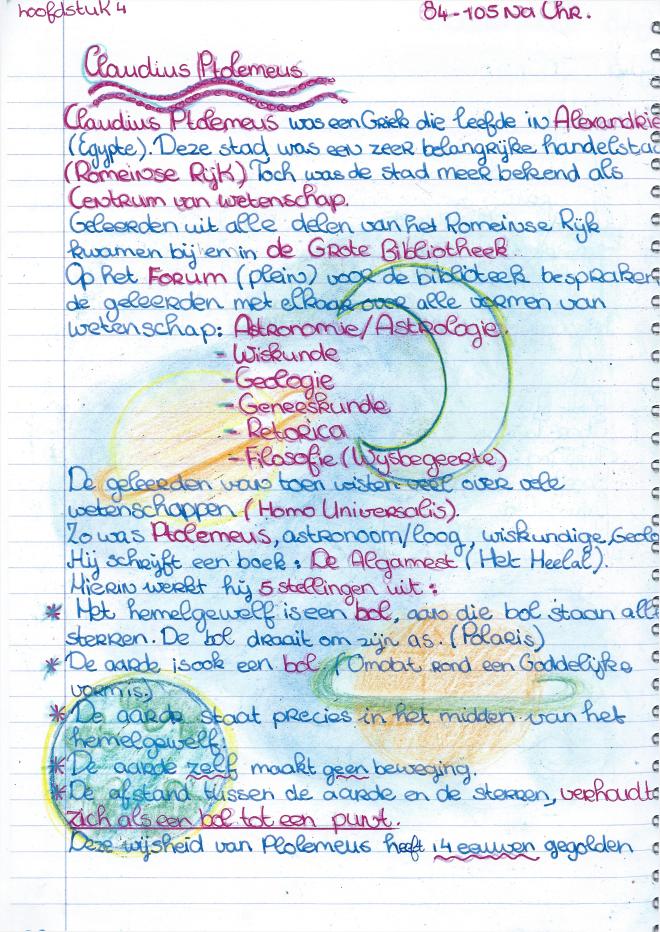 hoofdstuk 4
84-105 Na Chr.
Claudius Ptolemeus
Claudius Ptolemeus was een Griek die leefde in Alexandrie
(Egypte). Deze stad was een zeer belangrijke handelstad
(Romeinse Rijk) Toch was de stad meer bekend als
Centrum van wetenschap.
Geleerden uit alle delen van het Romeinse Rijk
kwamen bijeen in de Grote Bibliotheek.
Op het Forum (plein) voor de biblioteek bespraken
de geleerden met elkaar over alle vormen van
wetenschap: Astronomie/Astrologie.
- Wiskunde
- Geologie
- Geneeskunde
- Retorica
- Filosofie (Wysbegeerte)
De geleerden van toen wisten veel over vele
wetenschappen (Homo Universalis).
Zo was Ptolemeus, astronoom/loog, wiskundige, Geolo
Hij schrijft een boek: De Algamest (Het Heelal).
Hierin werkt hij 5 stellingen uit:
* Het hemelgewelf is een bol, aan die bol staan alle
sterren. De bol draait om zijn as. (Polaris)
* De aarde is ook een bol (Omdat rond een Goddelijke
vorm is.)
* De aarde staat precies in het midden van het
hemelgewelf.
* De aarde zelf maakt geen beweging.
* De afstand tussen de aarde en de sterren, verhoudt
zich als een bol tot een punt.
Deze wijsheid van Ptolemeus heeft 14 eeuwen gegolden